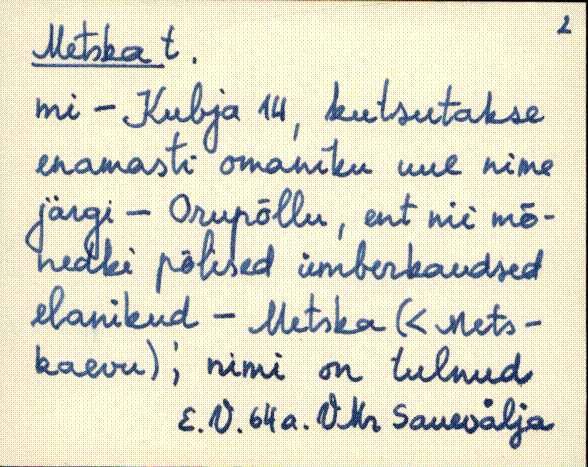 2
Metska t.
mi – Kubja 14, kutsutakse
enamasti omaniku uue nime
järgi – Orupõllu, ent nii mõ-
nedki põlised ümberkaudsed
elanikud – Metska (< Mets-
kaevu); nimi on tulnud
E. V. 64 a. VMr Sauevälja